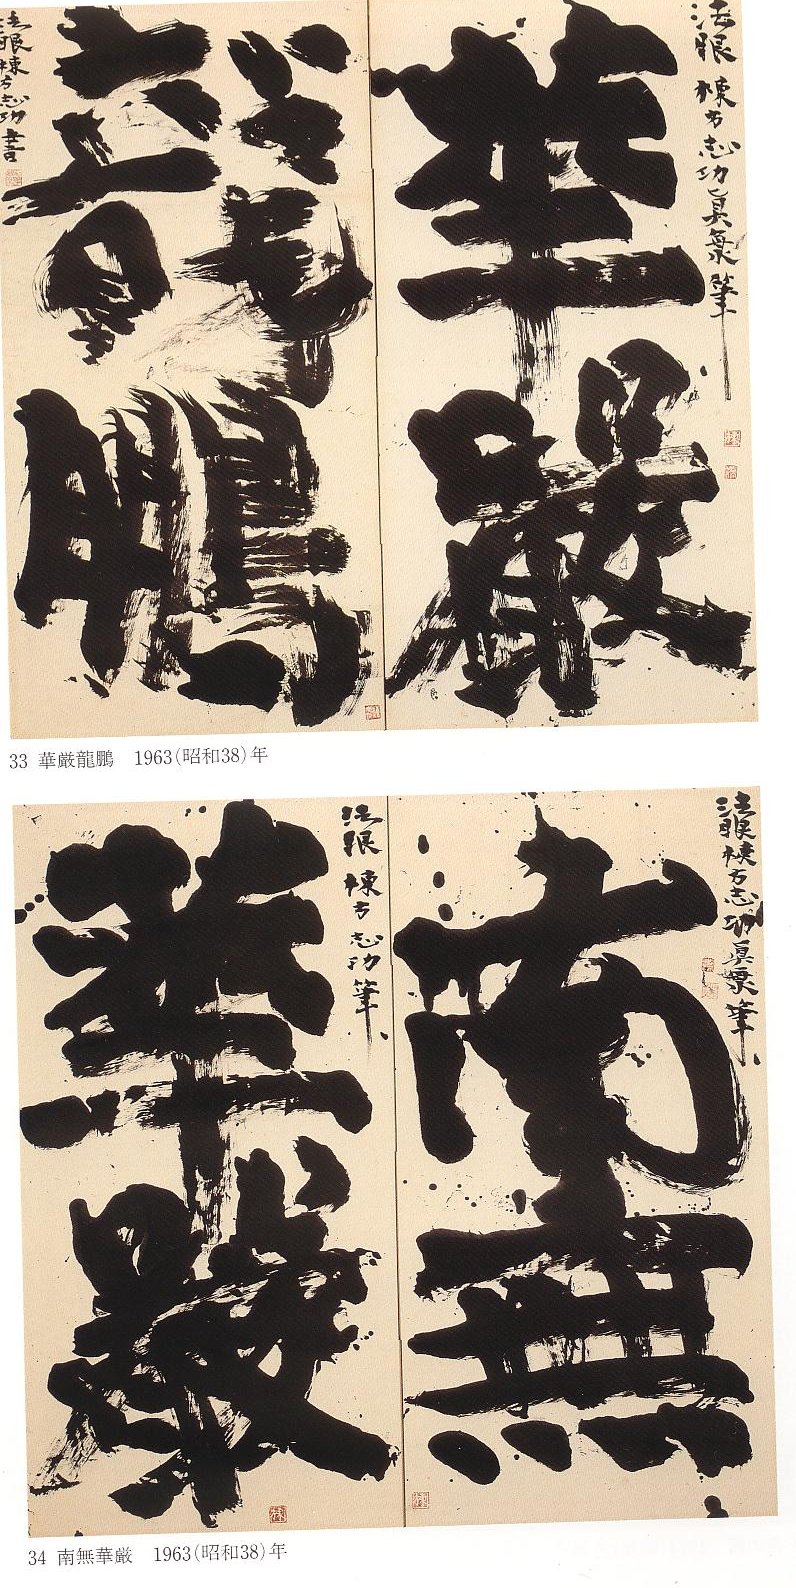 華
嚴
法眼 棟方志功眞氣筆
龍
鵬
法眼棟方志功書
33 華厳龍鵬 1963(昭和38)年
南
無
法眼棟方志功眞氣筆
華
嚴
法眼棟方志功筆
34 南無華厳 1963(昭和38)年